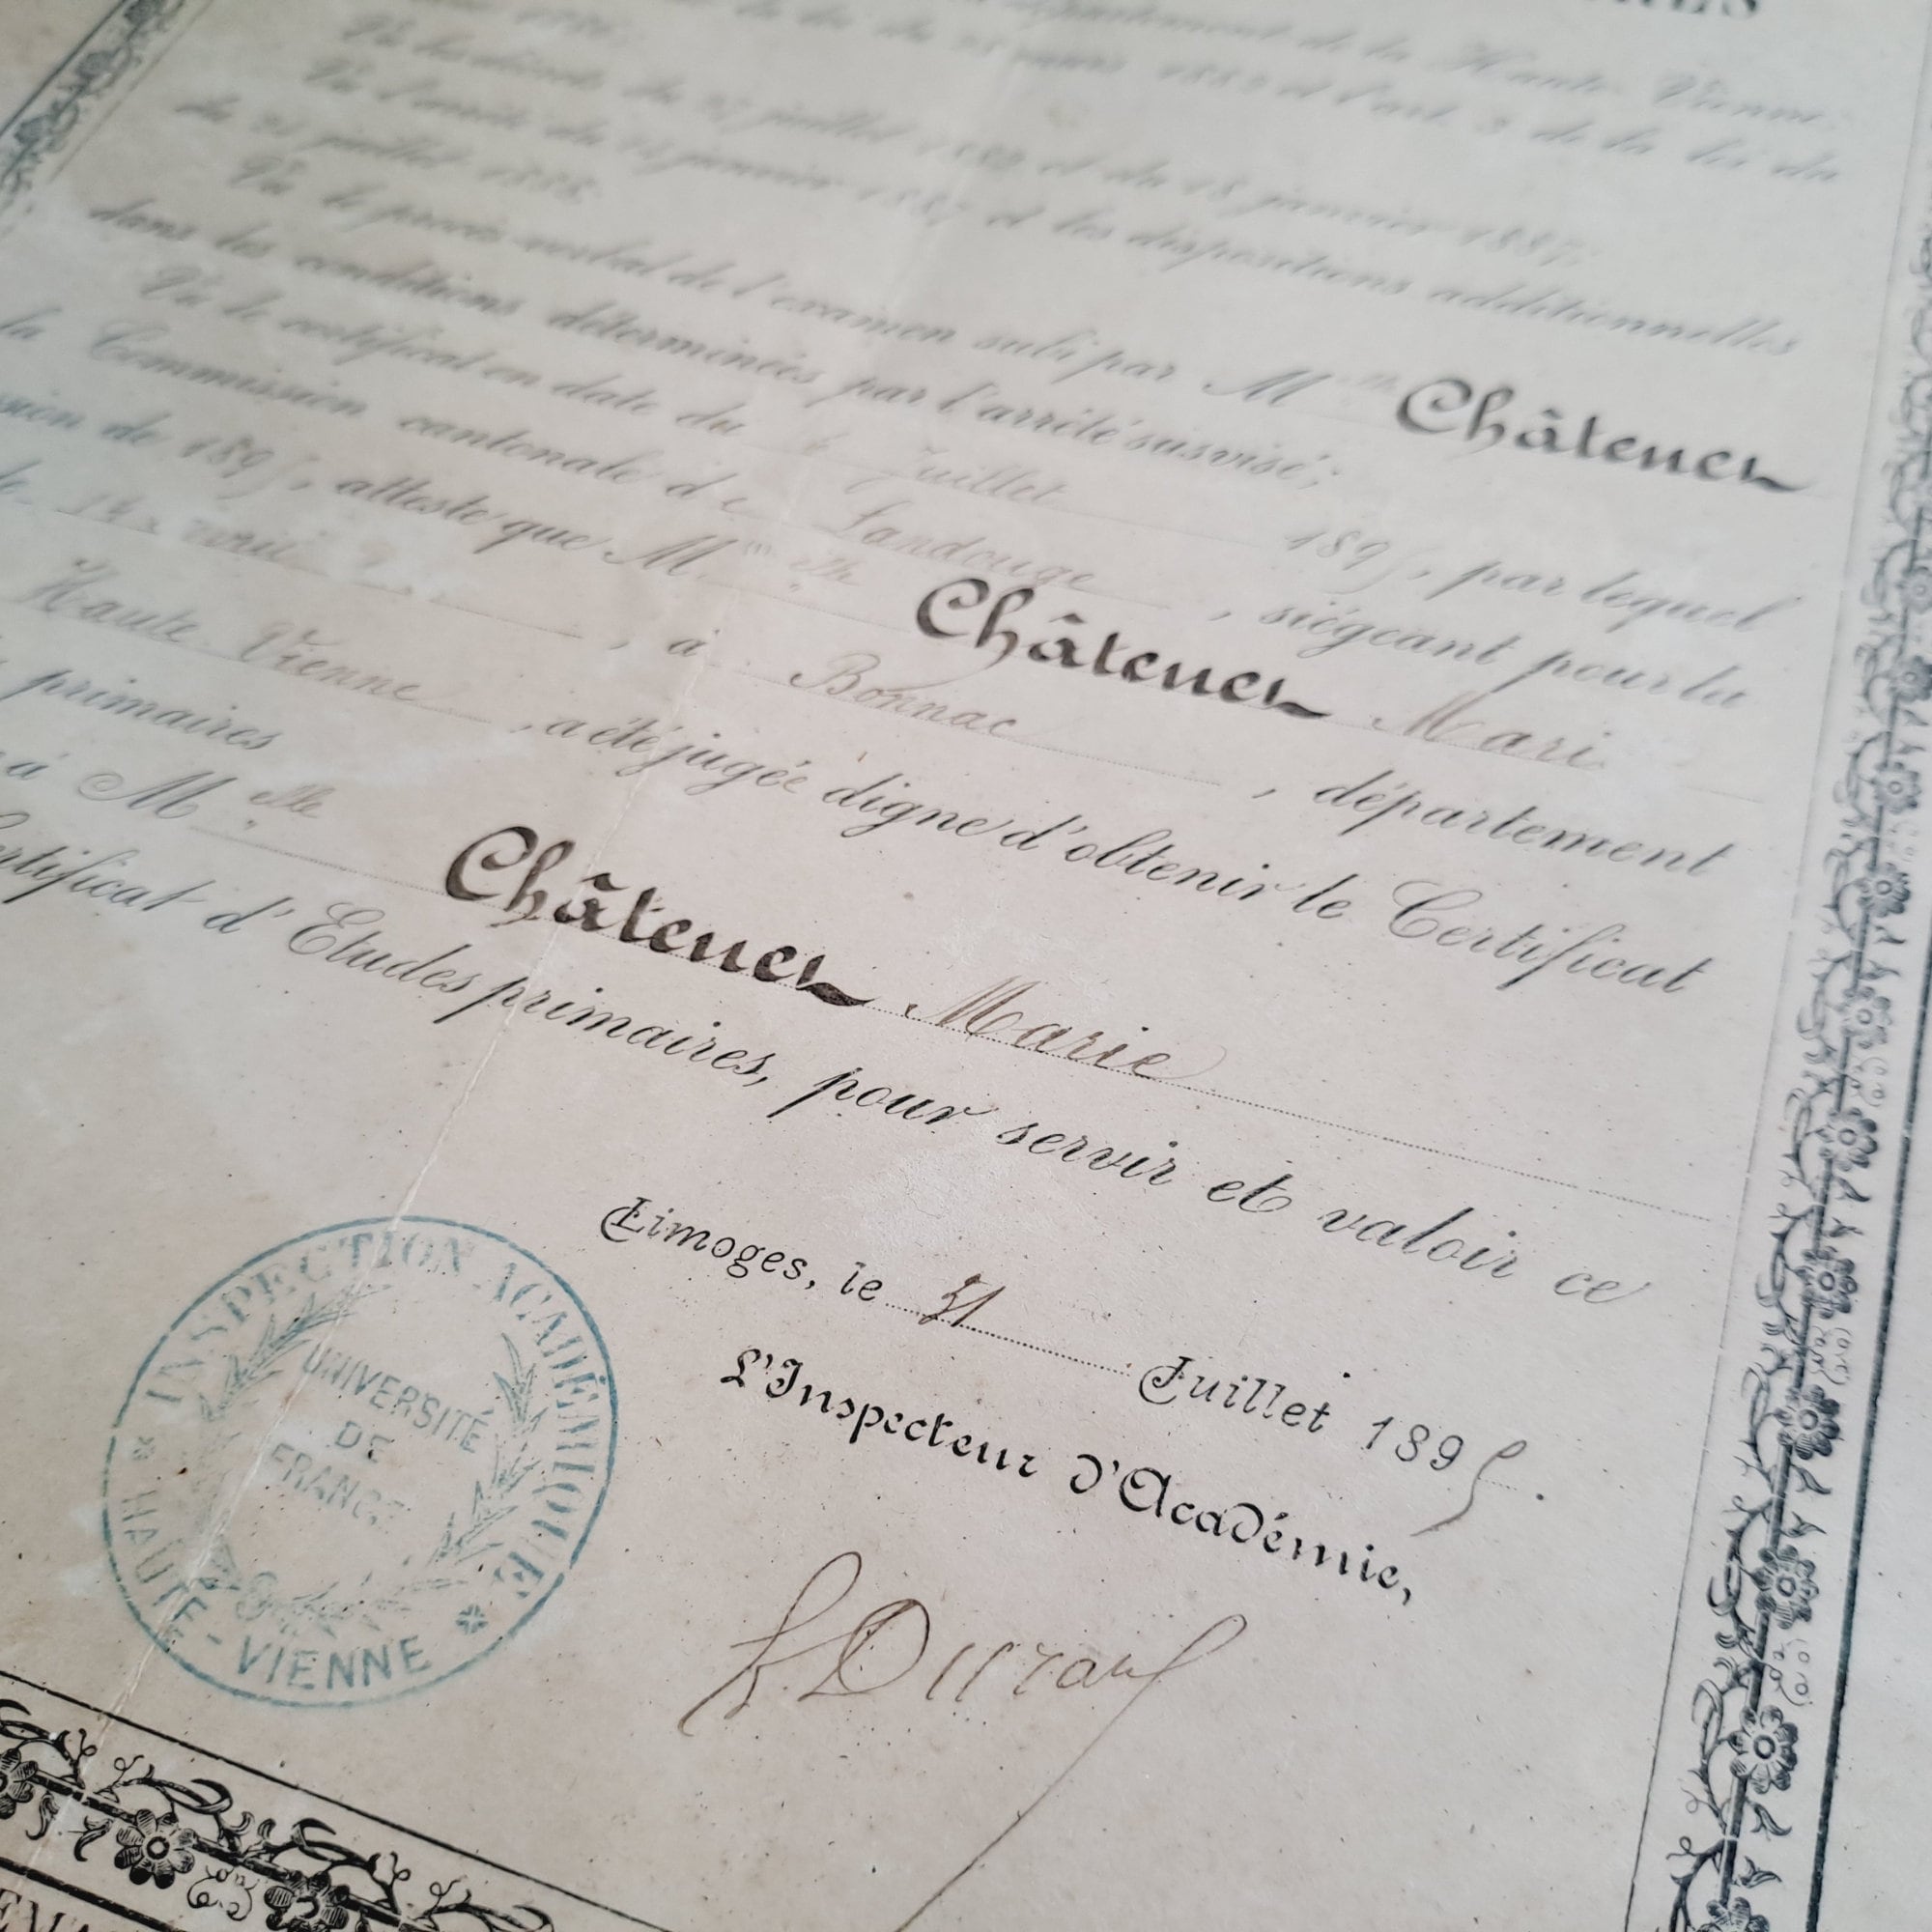 département de la Haute-Vienne
de la loi du 28 mars 1882 et l'art. 3 de la loi du
Vu les décrets du 27 juillet 1882 et du 18 janvier 1887;
Vu l'arrêté du 18 janvier 1887 et les dispositions additionnelles
du 24 juillet 1888;
Vu le procès-verbal de l'examen subi par Melle Châtenet
dans les conditions déterminées par l'arrêté susvisé;
Vu le certificat en date du Juillet 1895, par lequel
la Commission cantonale de Landouge, siégeant pour la
sion de 1895, atteste que Melle Châtenet Marie
à Bonnac, département
Haute-Vienne, a été jugée digne d'obtenir le Certificat
primaires
à Melle Châtenet Marie
ertificat d'Etudes primaires, pour servir et valoir ce
Limoges, le 31 Juillet 1895.
L'Inspecteur d'Académie,
INSPECTION ACADÉMIQUE
UNIVERSITÉ
DE
FRANCE
* HAUTE-VIENNE *